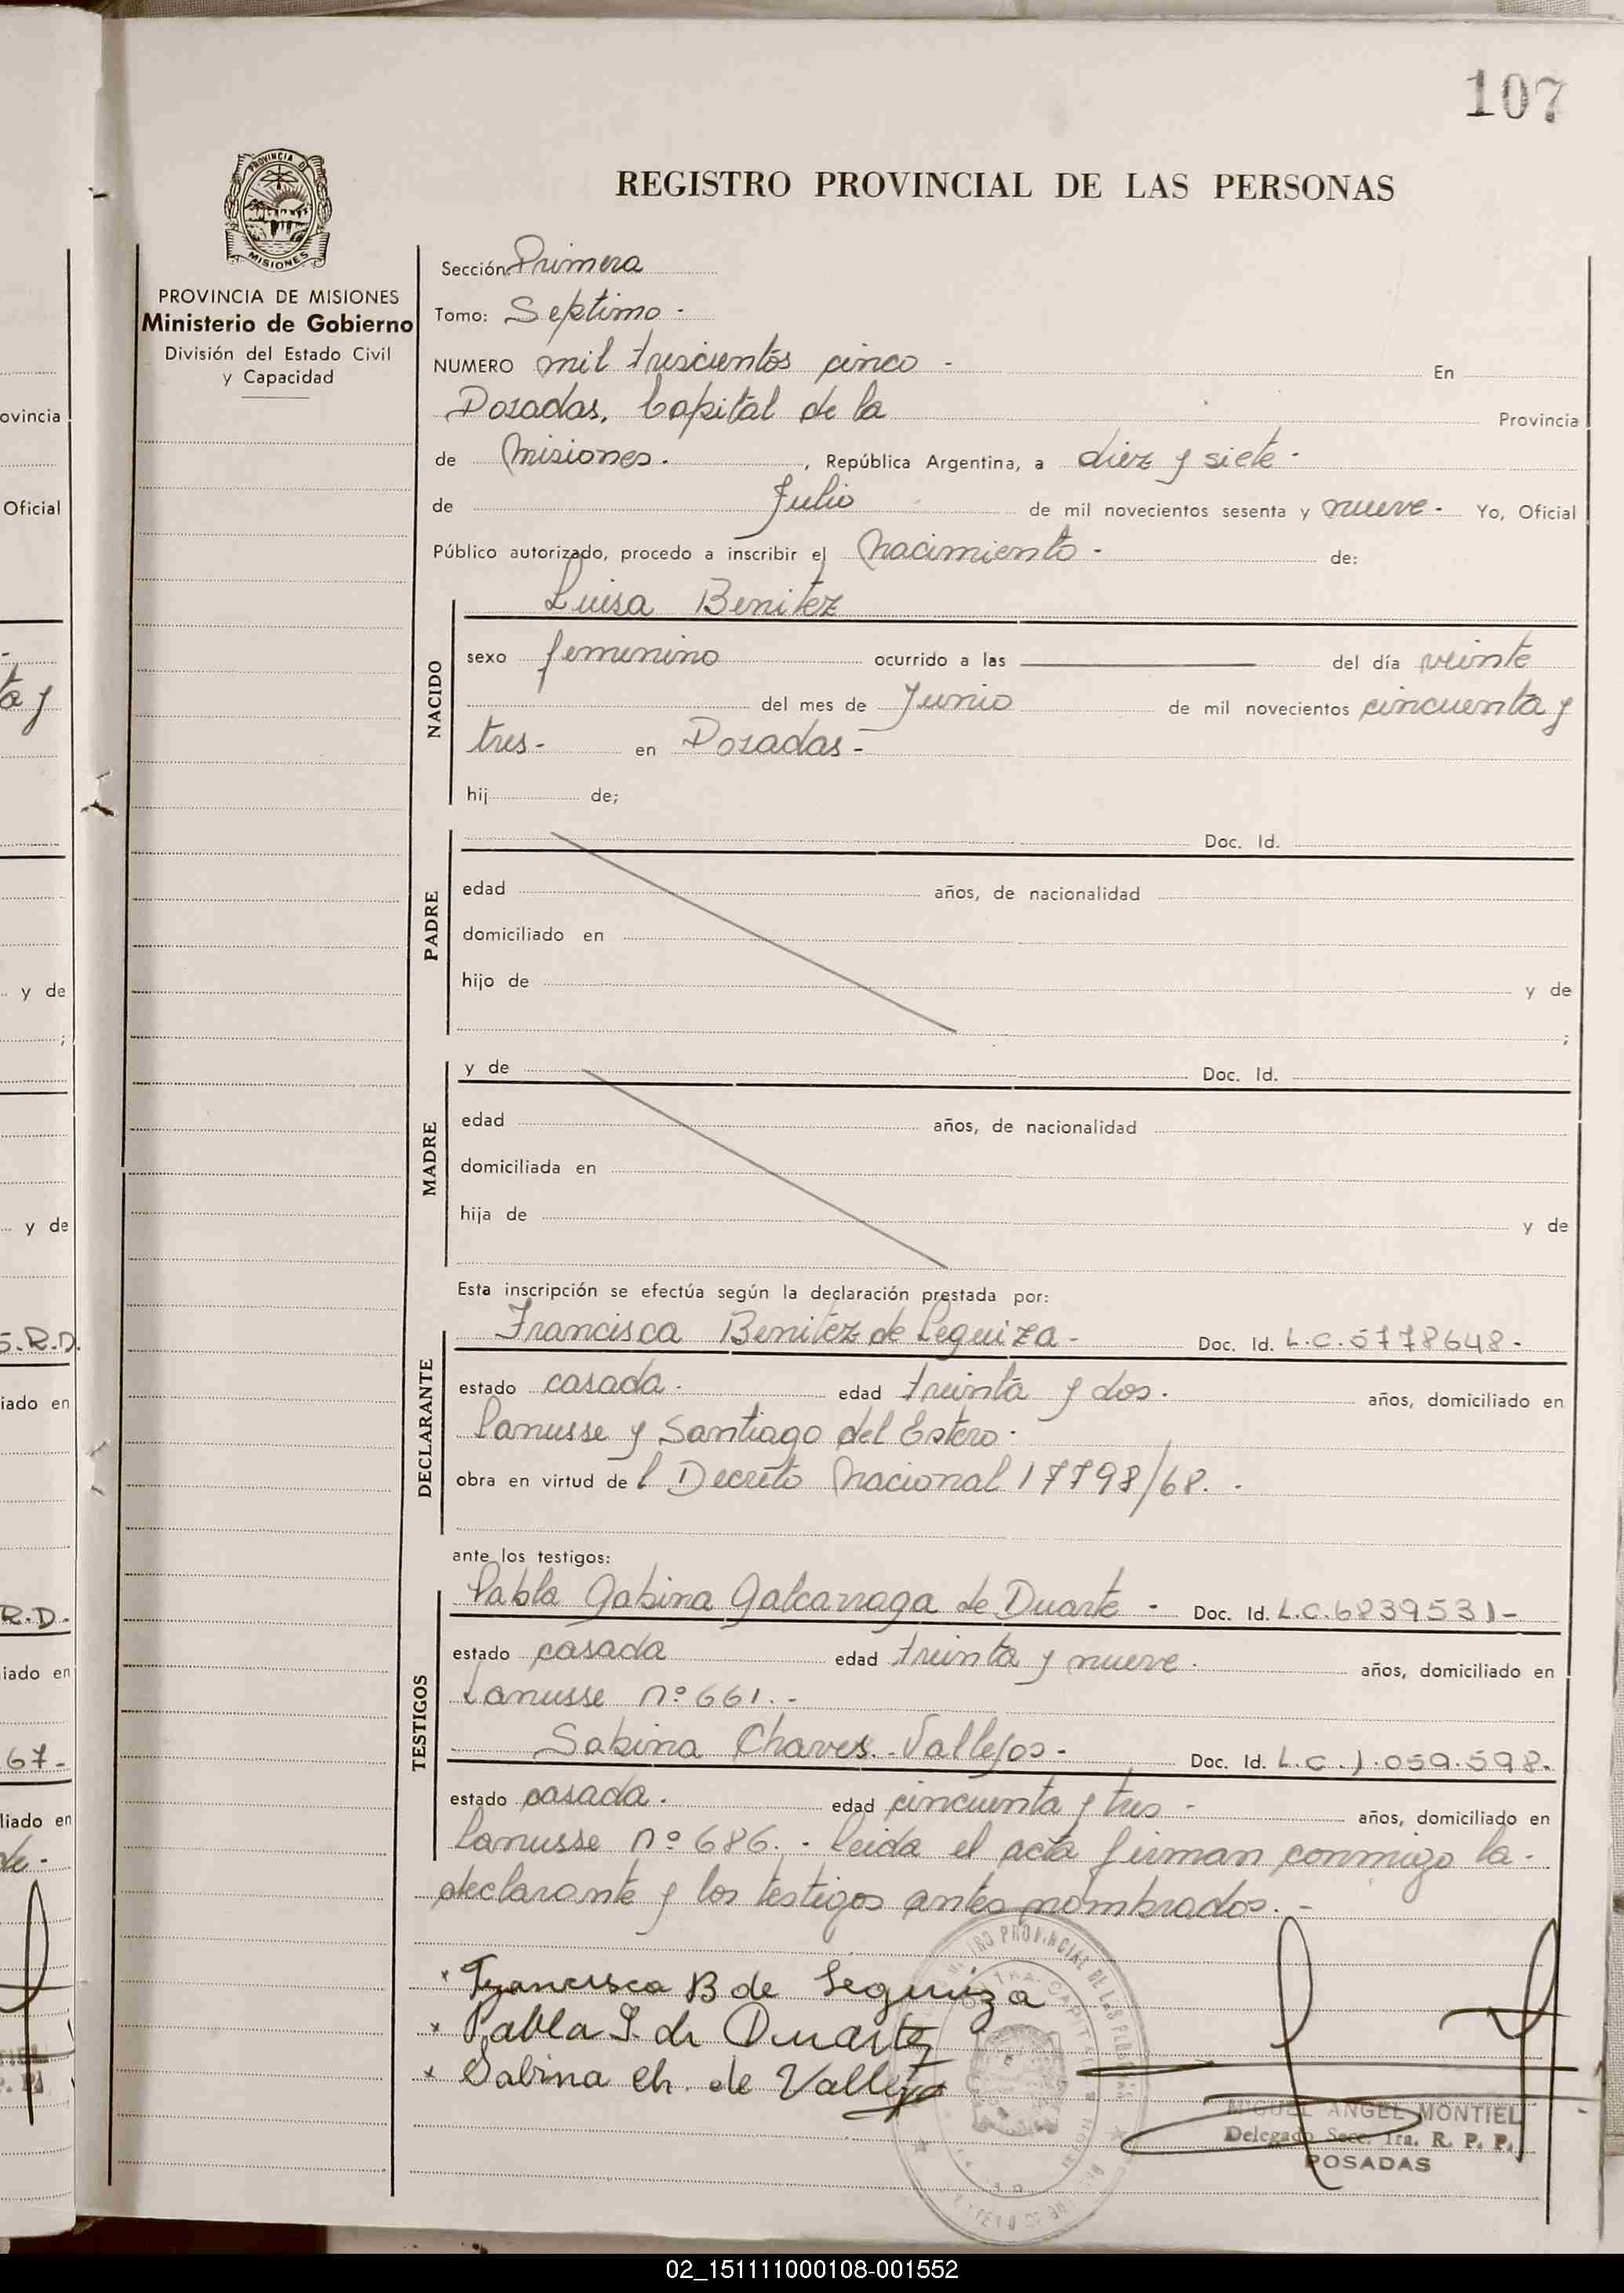 107
PROVINCIA DE
MISIONES
REGISTRO PROVINCIAL DE LAS PERSONAS
PROVINCIA DE MISIONES
Ministerio de Gobierno
División del Estado Civil
y Capacidad
Sección: Primera
Tomo: Septimo -
NUMERO mil trescientos cinco - En
Posadas, Capital de la Provincia
de Misiones. , República Argentina, a diez y siete -
de Julio de mil novecientos sesenta y nueve - Yo, Oficial
Público autorizado, procedo a inscribir el nacimiento - de:
NACIDO
Luisa Benitez
sexo femenino ocurrido a las del día veinte
del mes de Junio de mil novecientos cincuenta y
tres - en Posadas -
hij de;
PADRE
Doc. Id.
edad años, de nacionalidad
domiciliado en
hijo de y de
;
MADRE
y de Doc. Id.
edad años, de nacionalidad
domiciliada en
hija de y de
Esta inscripción se efectúa según la declaración prestada por:
DECLARANTE
Francisca Benitez de Leguiza - Doc. Id. L.C. 5778648 -
estado casada - edad treinta y dos . años, domiciliado en
Lanusse y Santiago del Estero -
obra en virtud de l Decreto Nacional 17798/68. -
ante los testigos:
TESTIGOS
Pabla Gabina Galcarraga de Duarte - Doc. Id. L.C. 6839531 -
estado casada edad treinta y nueve . años, domiciliado en
Lanusse nº 661. -
Sabina Chaves Vallejos - Doc. Id. L.C. 1.059.598.
estado casada . edad cincuenta y tres - años, domiciliado en
Lanusse nº 686. - Leida el acta firman conmigo la -
declarante y los testigos antes nombrados. -
x Francisca B de Leguiza
x Pabla G. de Duarte
x Sabina Ch. de Vallejo
MIGUEL ANGEL MONTIEL
Delegado Secc. 1ra. R. P. P.
POSADAS
ovincia
Oficial
ta y
y de
;
y de
S.R.D.
iado en
R.D.
iado en
67-
liado en
de -
02_151111000108-001552